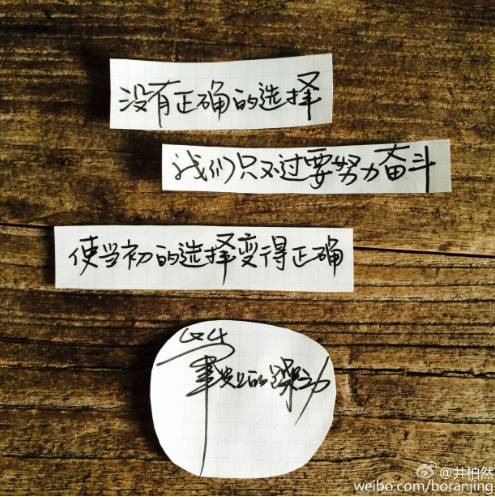 没有正确的选择
我们只不过要努力奋斗
使当初的选择变得正确
@井柏然
weibo.com/boranjing